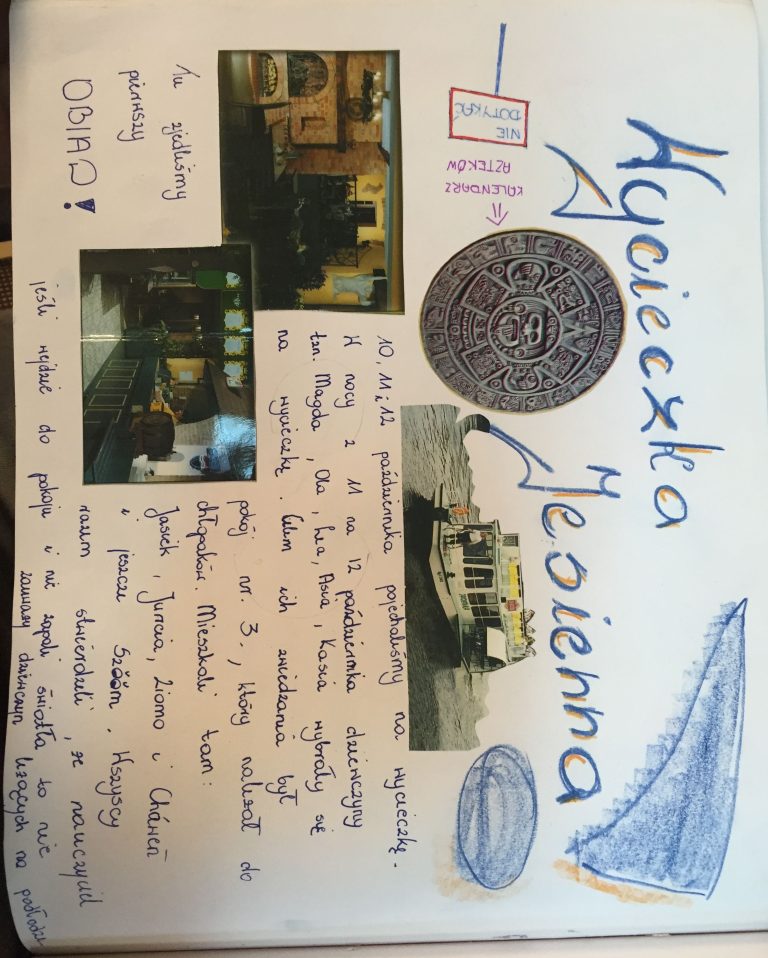 Wycieczka
Jesienna
NIE
DOTYKAĆ
KALENDARZ
AZTEKÓW
10, 11 i 12 października pojechaliśmy na wycieczkę.
W nocy z 11 na 12 października dziewczyny
tzn. Magda, Ola, Lea, Asia, Kasia wybrały się
na wycieczkę. Celem ich zwiedzania był
pokój nr. 3., który należał do
chłopaków. Mieszkali tam:
Jasiek, Juricia, Ziomo i Cháweń
i jeszcze Szööm. Wszyscy
razem stwierdzili, że nauczyciel
jeśli wejdzie do pokoju i nie zapali światła to nie
zauważy dziewczyn leżących na podłodze
Tu zjedliśmy
pierwszy
OBIAD!